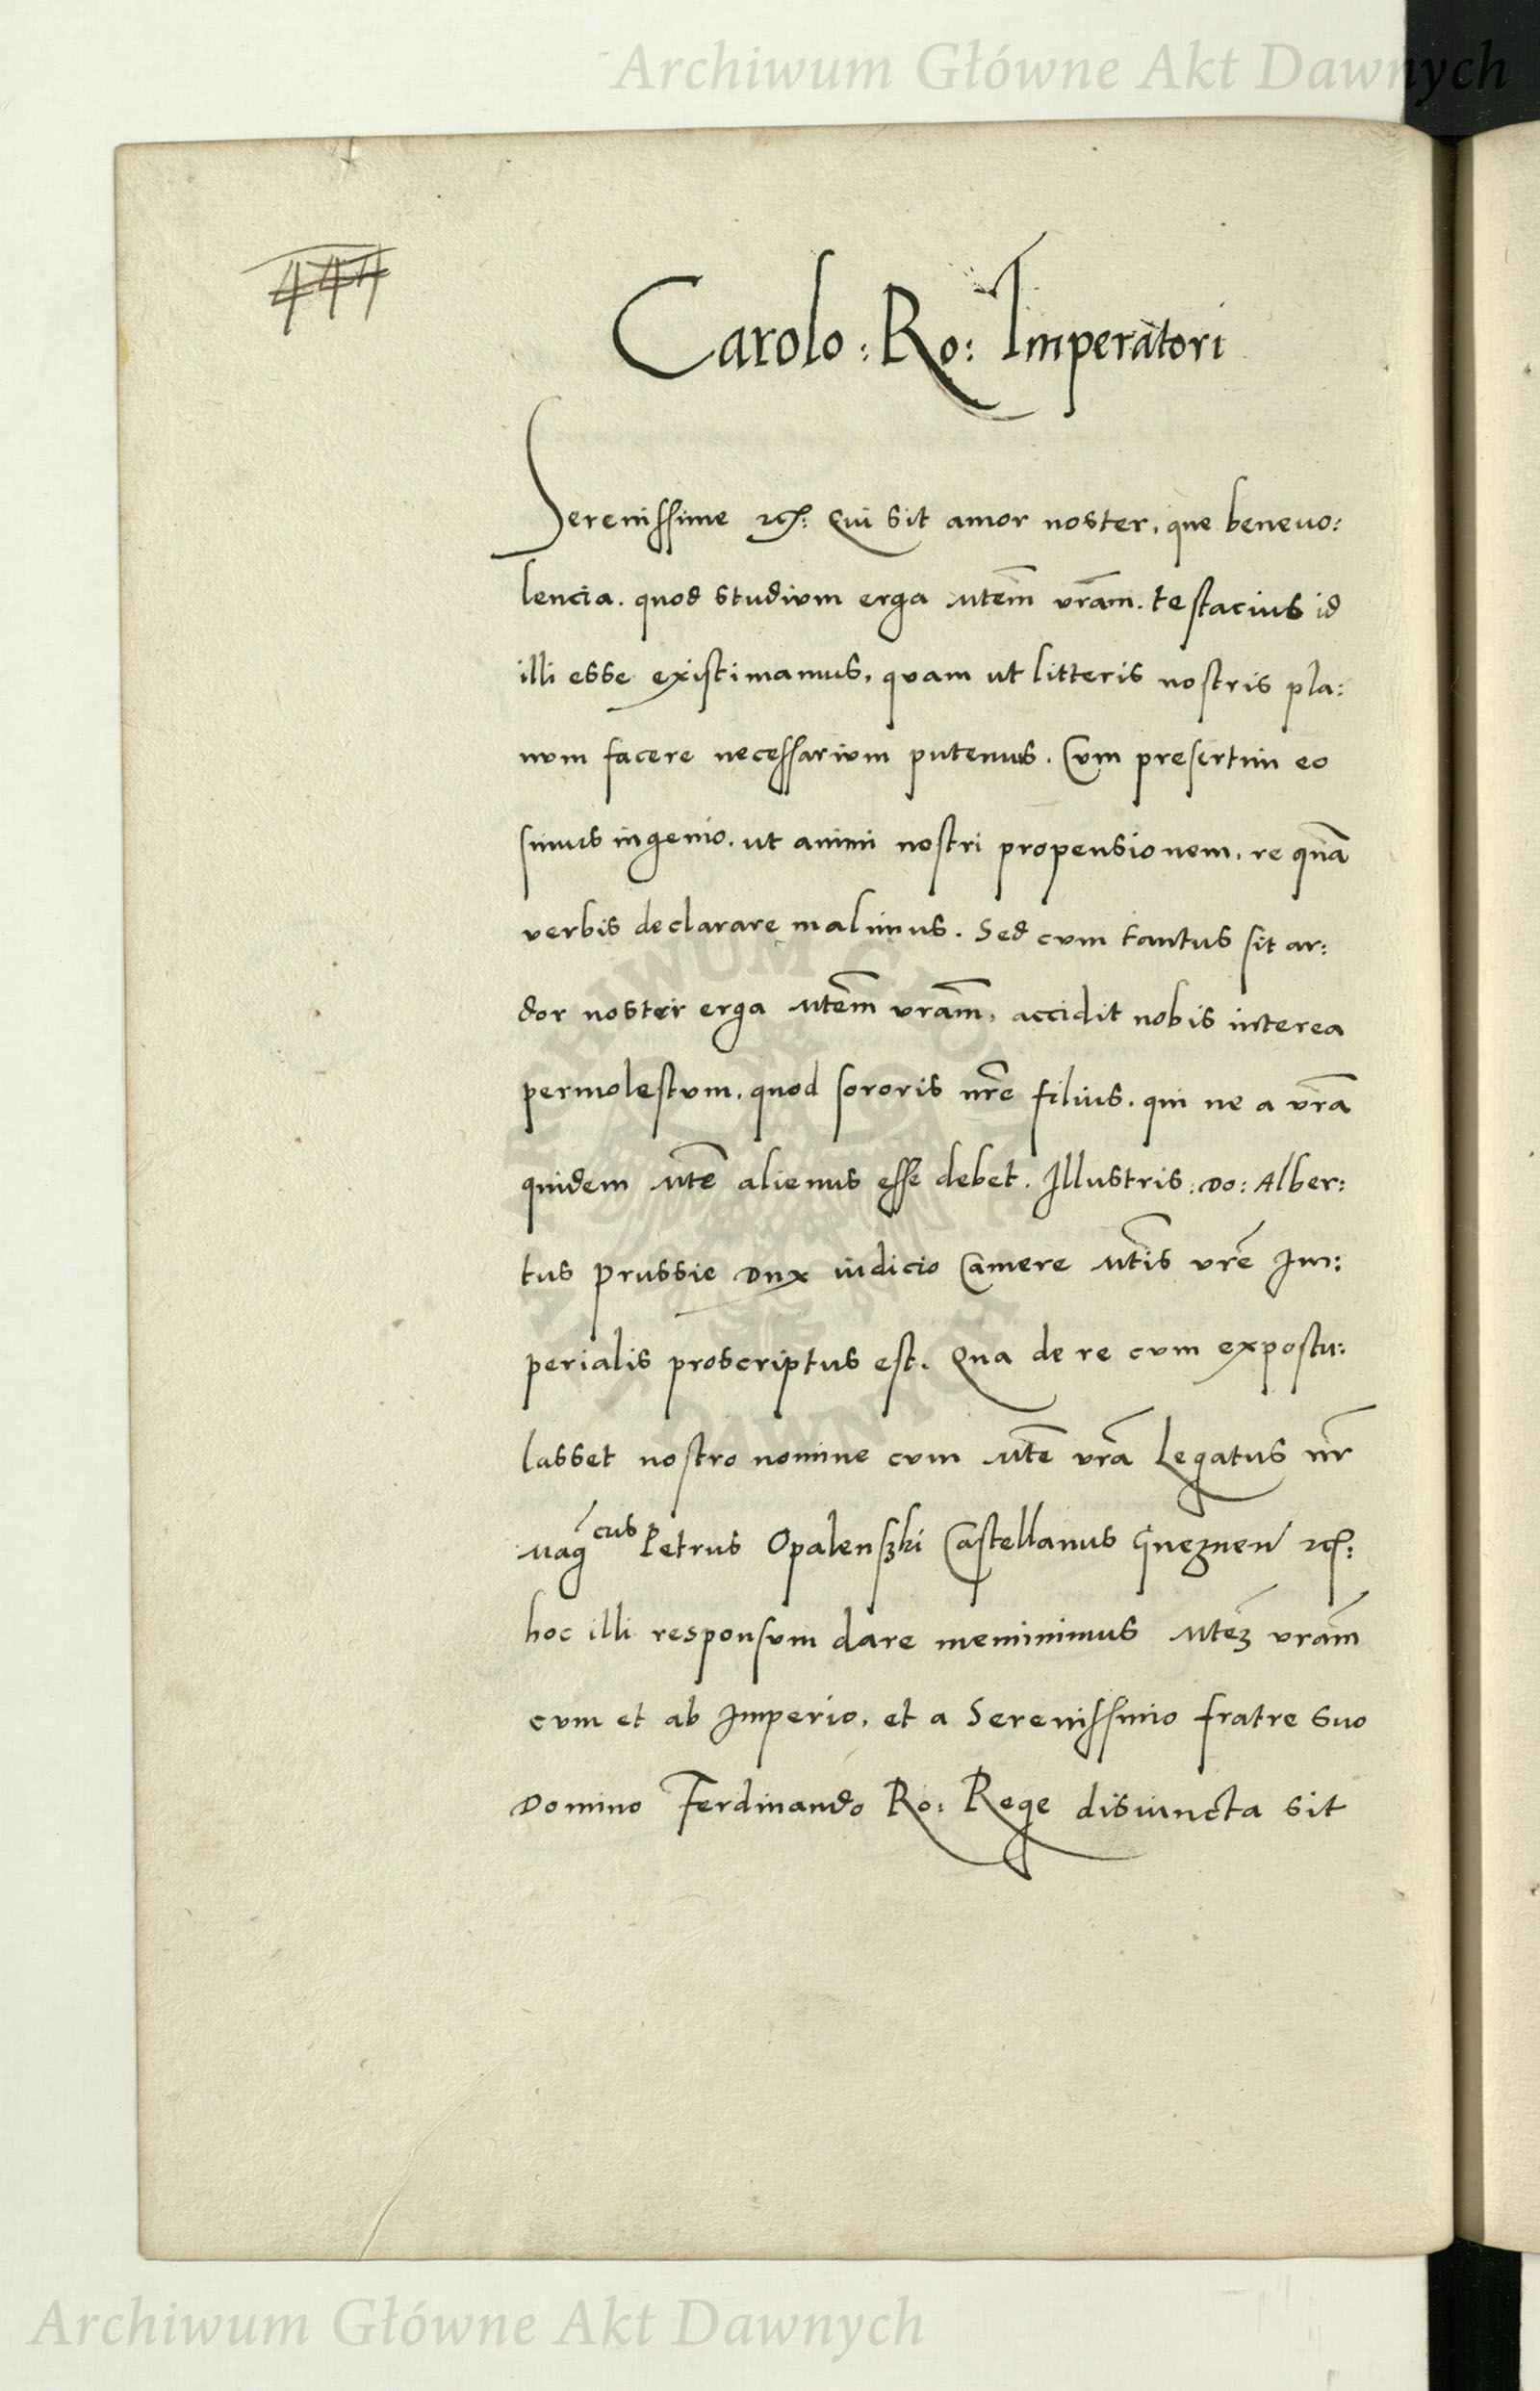 Archiwum Główne Akt Dawnych
444
Carolo: Ro: Imperatori
Serenissime etc: Qui sit amor noster, que beneuo:
lencia. quod studium erga Mtem vram. testacius id
illi esse existimamus, quam ut litteris nostris pla:
num facere necessarium putemus. Cum presertim eo
simus ingenio. ut animi nostri propensionem, re quã
verbis declarare malimus. Sed cum tantus sit ar:
dor noster erga Mtem vram, accidit nobis interea
permolestum, quod sororis nrẽ filius. qui ne a vrã
quidem Mte alienus esse debet. Illustris: Do: Alber:
tus Prussie Dux iudicio Camere Mtis vrẽ Im:
perialis proscriptus est. Qua de re cum expostu:
lasset nostro nomine cum Mte vrã Legatus nr̃
Magcus Petrus Opalenski Castellanus Gneznen etc:
hoc illi responsum dare meminimus Mtez vram
cum et ab Imperio, et a Serenissimo fratre suo
Domino Ferdinando Ro: Rege disiuncta sit
Archiwum Główne Akt Dawnych